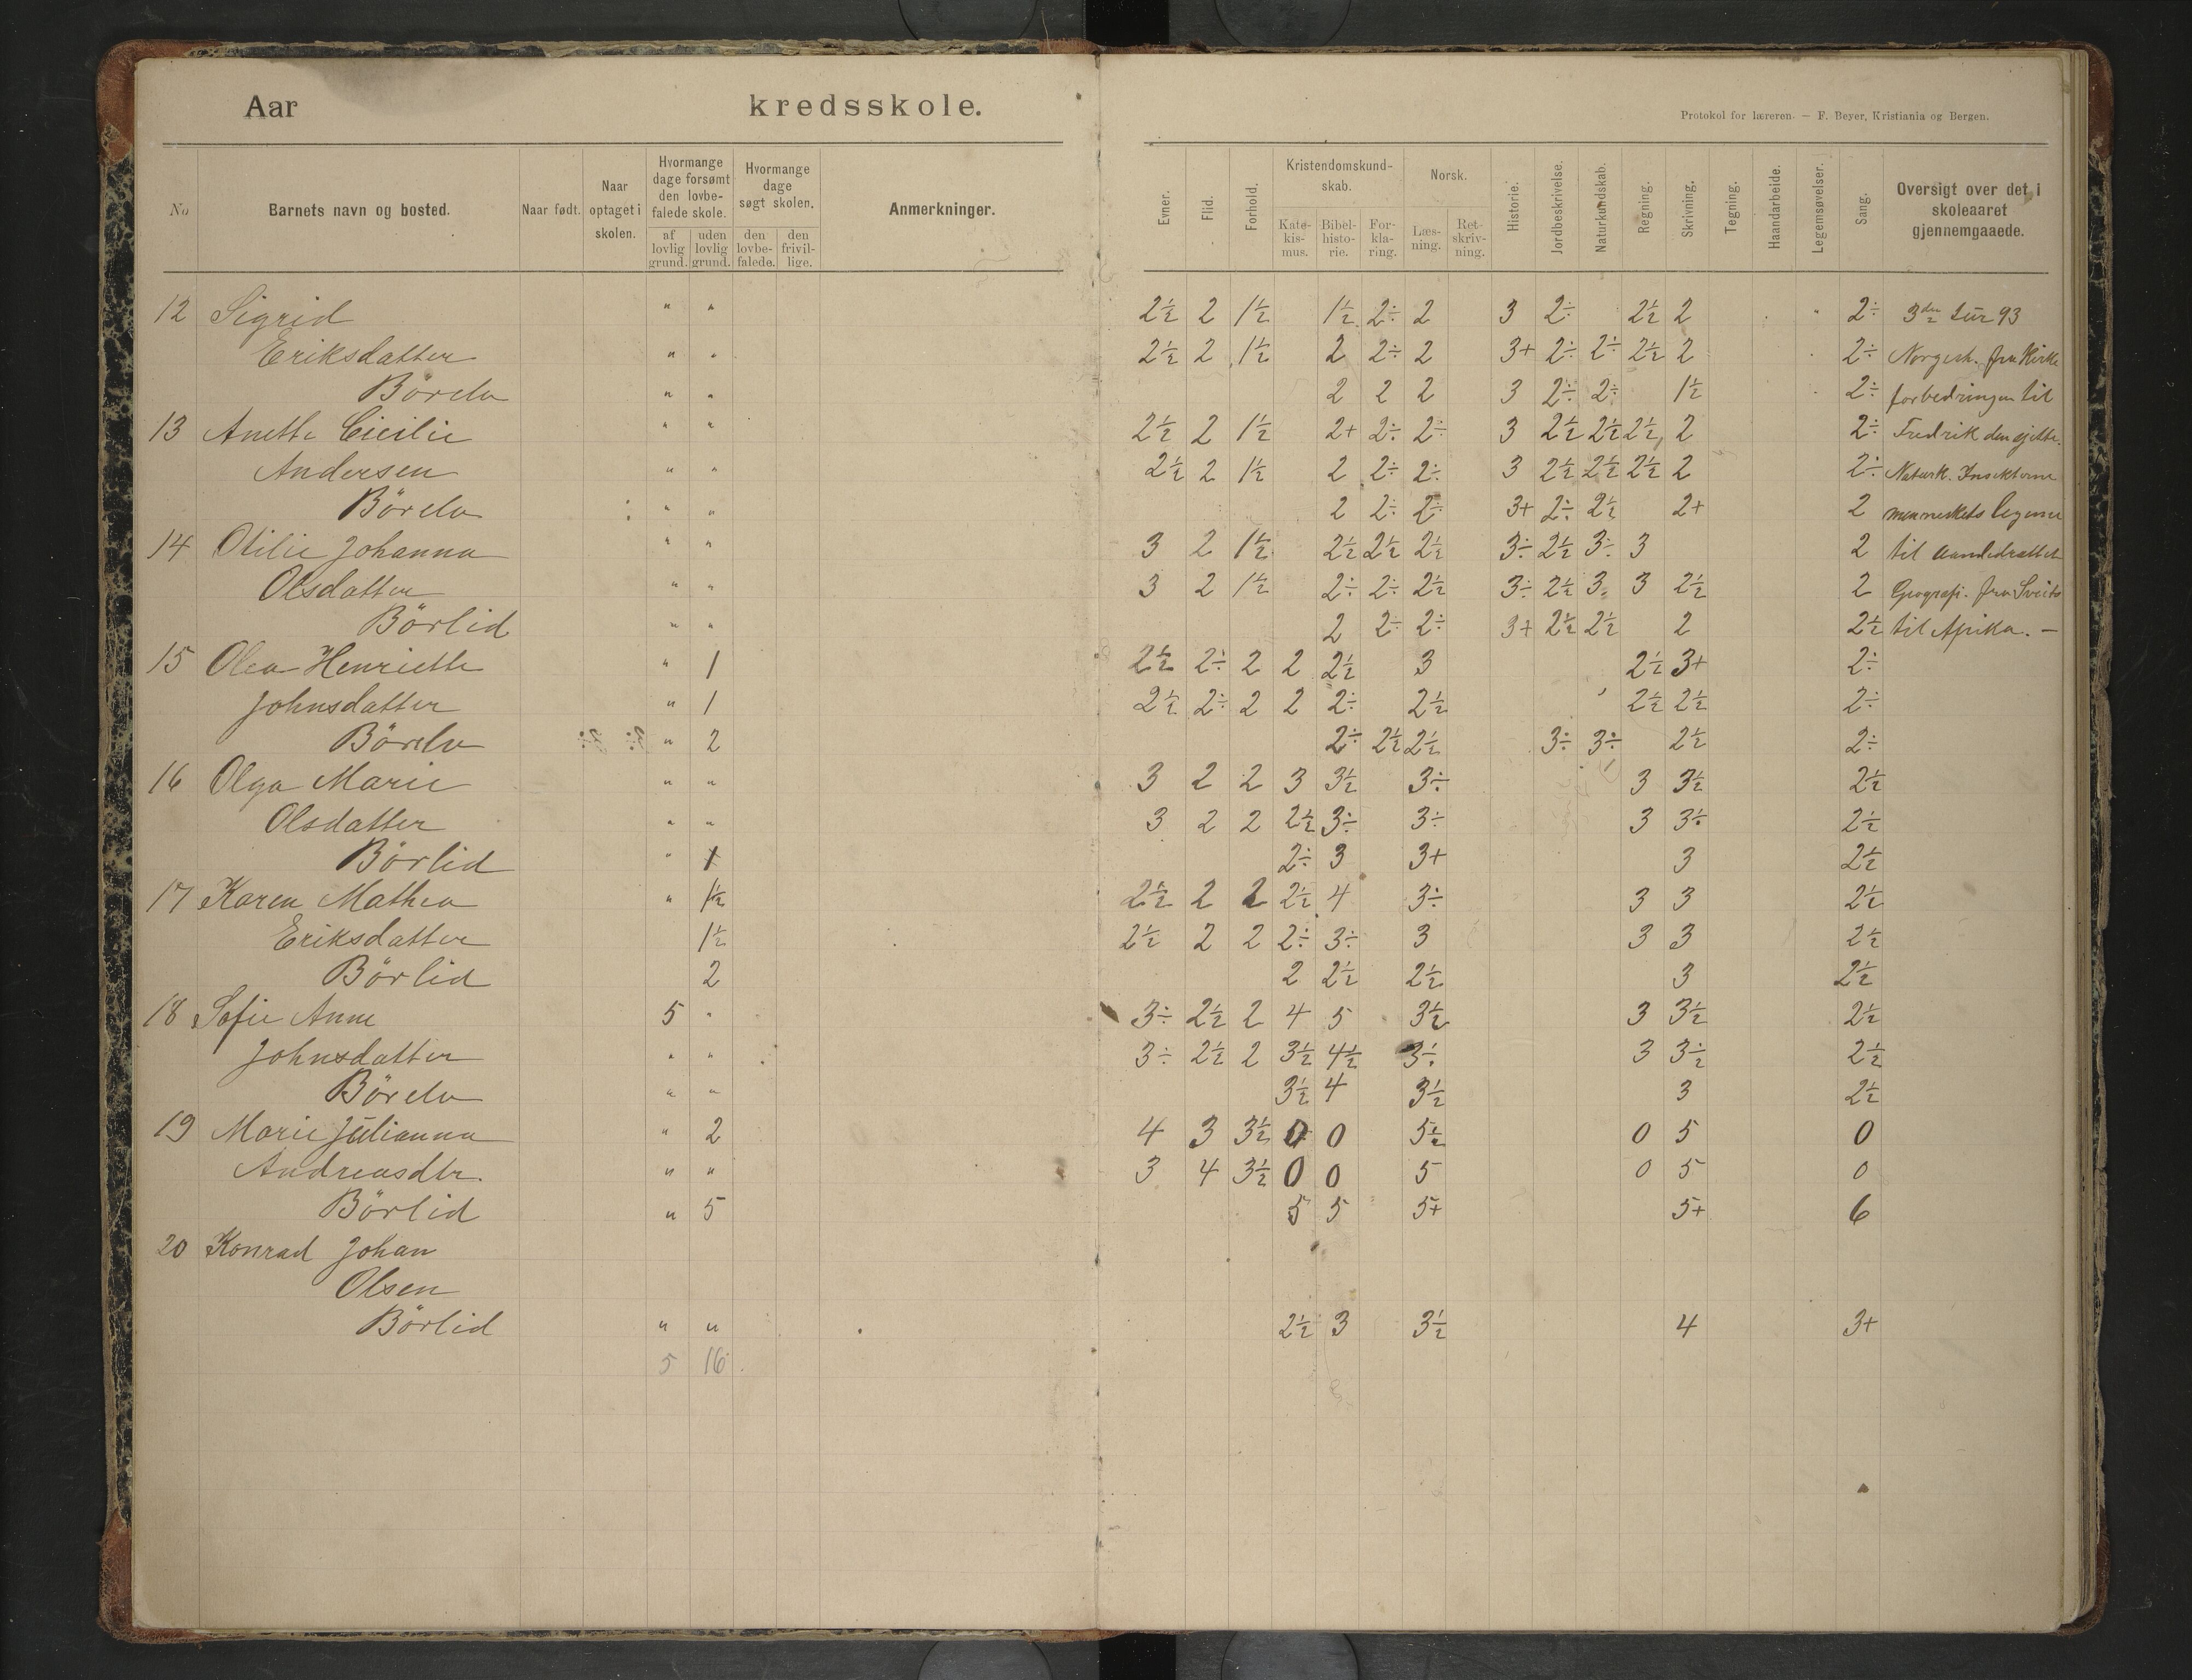 Aar kredsskole.
Protokol for læreren. — F. Beyer, Kristiania og Bergen.
No Barnets navn og bosted. Naar født. Naar optaget i skolen. Hvormange dage forsømt den lovbefalede skole. af lovlig grund. uden lovlig grund. Hvormange dage søgt skolen. den lovbefalede. den frivillige. Anmerkninger. Evner. Flid. Forhold. Kristendomskundskab. Katekismus. Bibelhistorie. Forklaring. Norsk. Læsning. Retskrivning. Historie. Jordbeskrivelse. Naturkundskab. Regning. Skrivning. Tegning. Haandarbeide. Legemsøvelser. Sang. Oversigt over det i skoleaaret gjennemgaaede.
12 Sigrid " " 2½ 2 1½ 1½ 2÷ 2 3 2÷ 2½ 2 2÷ 3die tur 93
Eriksdatter " " 2½ 2 1½ 2 2÷ 2 3+ 2÷ 2÷ 2½ 2 2÷ Norgesh. fra Kirke
Börelv " " 2 2 2 3 2÷ 2÷ 1½ 2÷ forbedringen til
13 Anette Cicilie " " 2½ 2 1½ 2+ 2÷ 2÷ 3 2½ 2½ 2½ 2 2÷ Fredrik den sjette.
Andersen " " 2½ 2 1½ 2 2÷ 2÷ 3 2½ 2½ 2½ 2 2÷ Naturk. Insekterne
Börelv " " 2 2÷ 2÷ 3+ 2÷ 2½ 2+ 2 menneskets legeme
14 Otilie Johanna " " 3 2 1½ 2½ 2½ 2½ 3÷ 2½ 3÷ 3 2 til Aandedrættet
Olsdatter " " 3 2 1½ 2÷ 2÷ 2½ 3÷ 2½ 3÷ 3 2½ 2 Geografi. fra Sveits
Börlid " " 2 2÷ 2÷ 3+ 2½ 2½ 2 2½ til Afrika. —
15 Olea Henriette " 1 2½ 2÷ 2 2 2½ 3 2½ 3+ 2÷
Johnsdatter " 1 2½ 2÷ 2 2 2÷ 2½ 2½ 2½ 2÷
Börelv " 2 2÷ 2½ 2½ 3÷ 3÷ 2½ 2÷
16 Olga Marie " " 3 2 2 3 3½ 3÷ 3 3½ 2½
Olsdatter " " 3 2 2 2½ 3÷ 3÷ 3 3÷ 2½
Börlid " 1 2÷ 3 3+ 3 2½
17 Karen Mathea " 1½ 2½ 2 2 2½ 4 3÷ 3 3 2½
Eriksdatter 1½ 2½ 2 2 2÷ 3÷ 3 3 3 2½
Börlid 2 2 2½ 2½ 3 2½
18 Sofie Anne 5 " 3÷ 2½ 2 4 5 3½ 3 3½ 2½
Johnsdatter " " 3÷ 2½ 2 3½ 4½ 3÷ 3 3½ 2½
Börelv " " 3½ 4 3½ 3 2½
19 Marie Julianna " 2 4 3 3½ 0 0 5½ 0 5 0
Andreasdtr. " " 3 4 3½ 0 0 5 0 5 0
Börlid " 5 5 5 5+ 5+ 6
20 Konrad Johan
Olsen
Börlid " " 2½ 3 3½ 4 3+
5 16